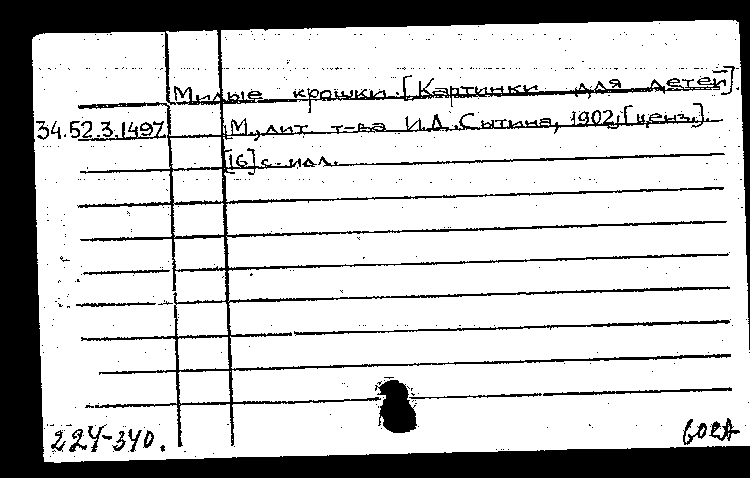 Милые крошки. [Картинки для детей].
34.52.3.1497 М., лит. т-ва И.Д. Сытина, 1902, [ценз.].
[16] с. илл.
224-340.